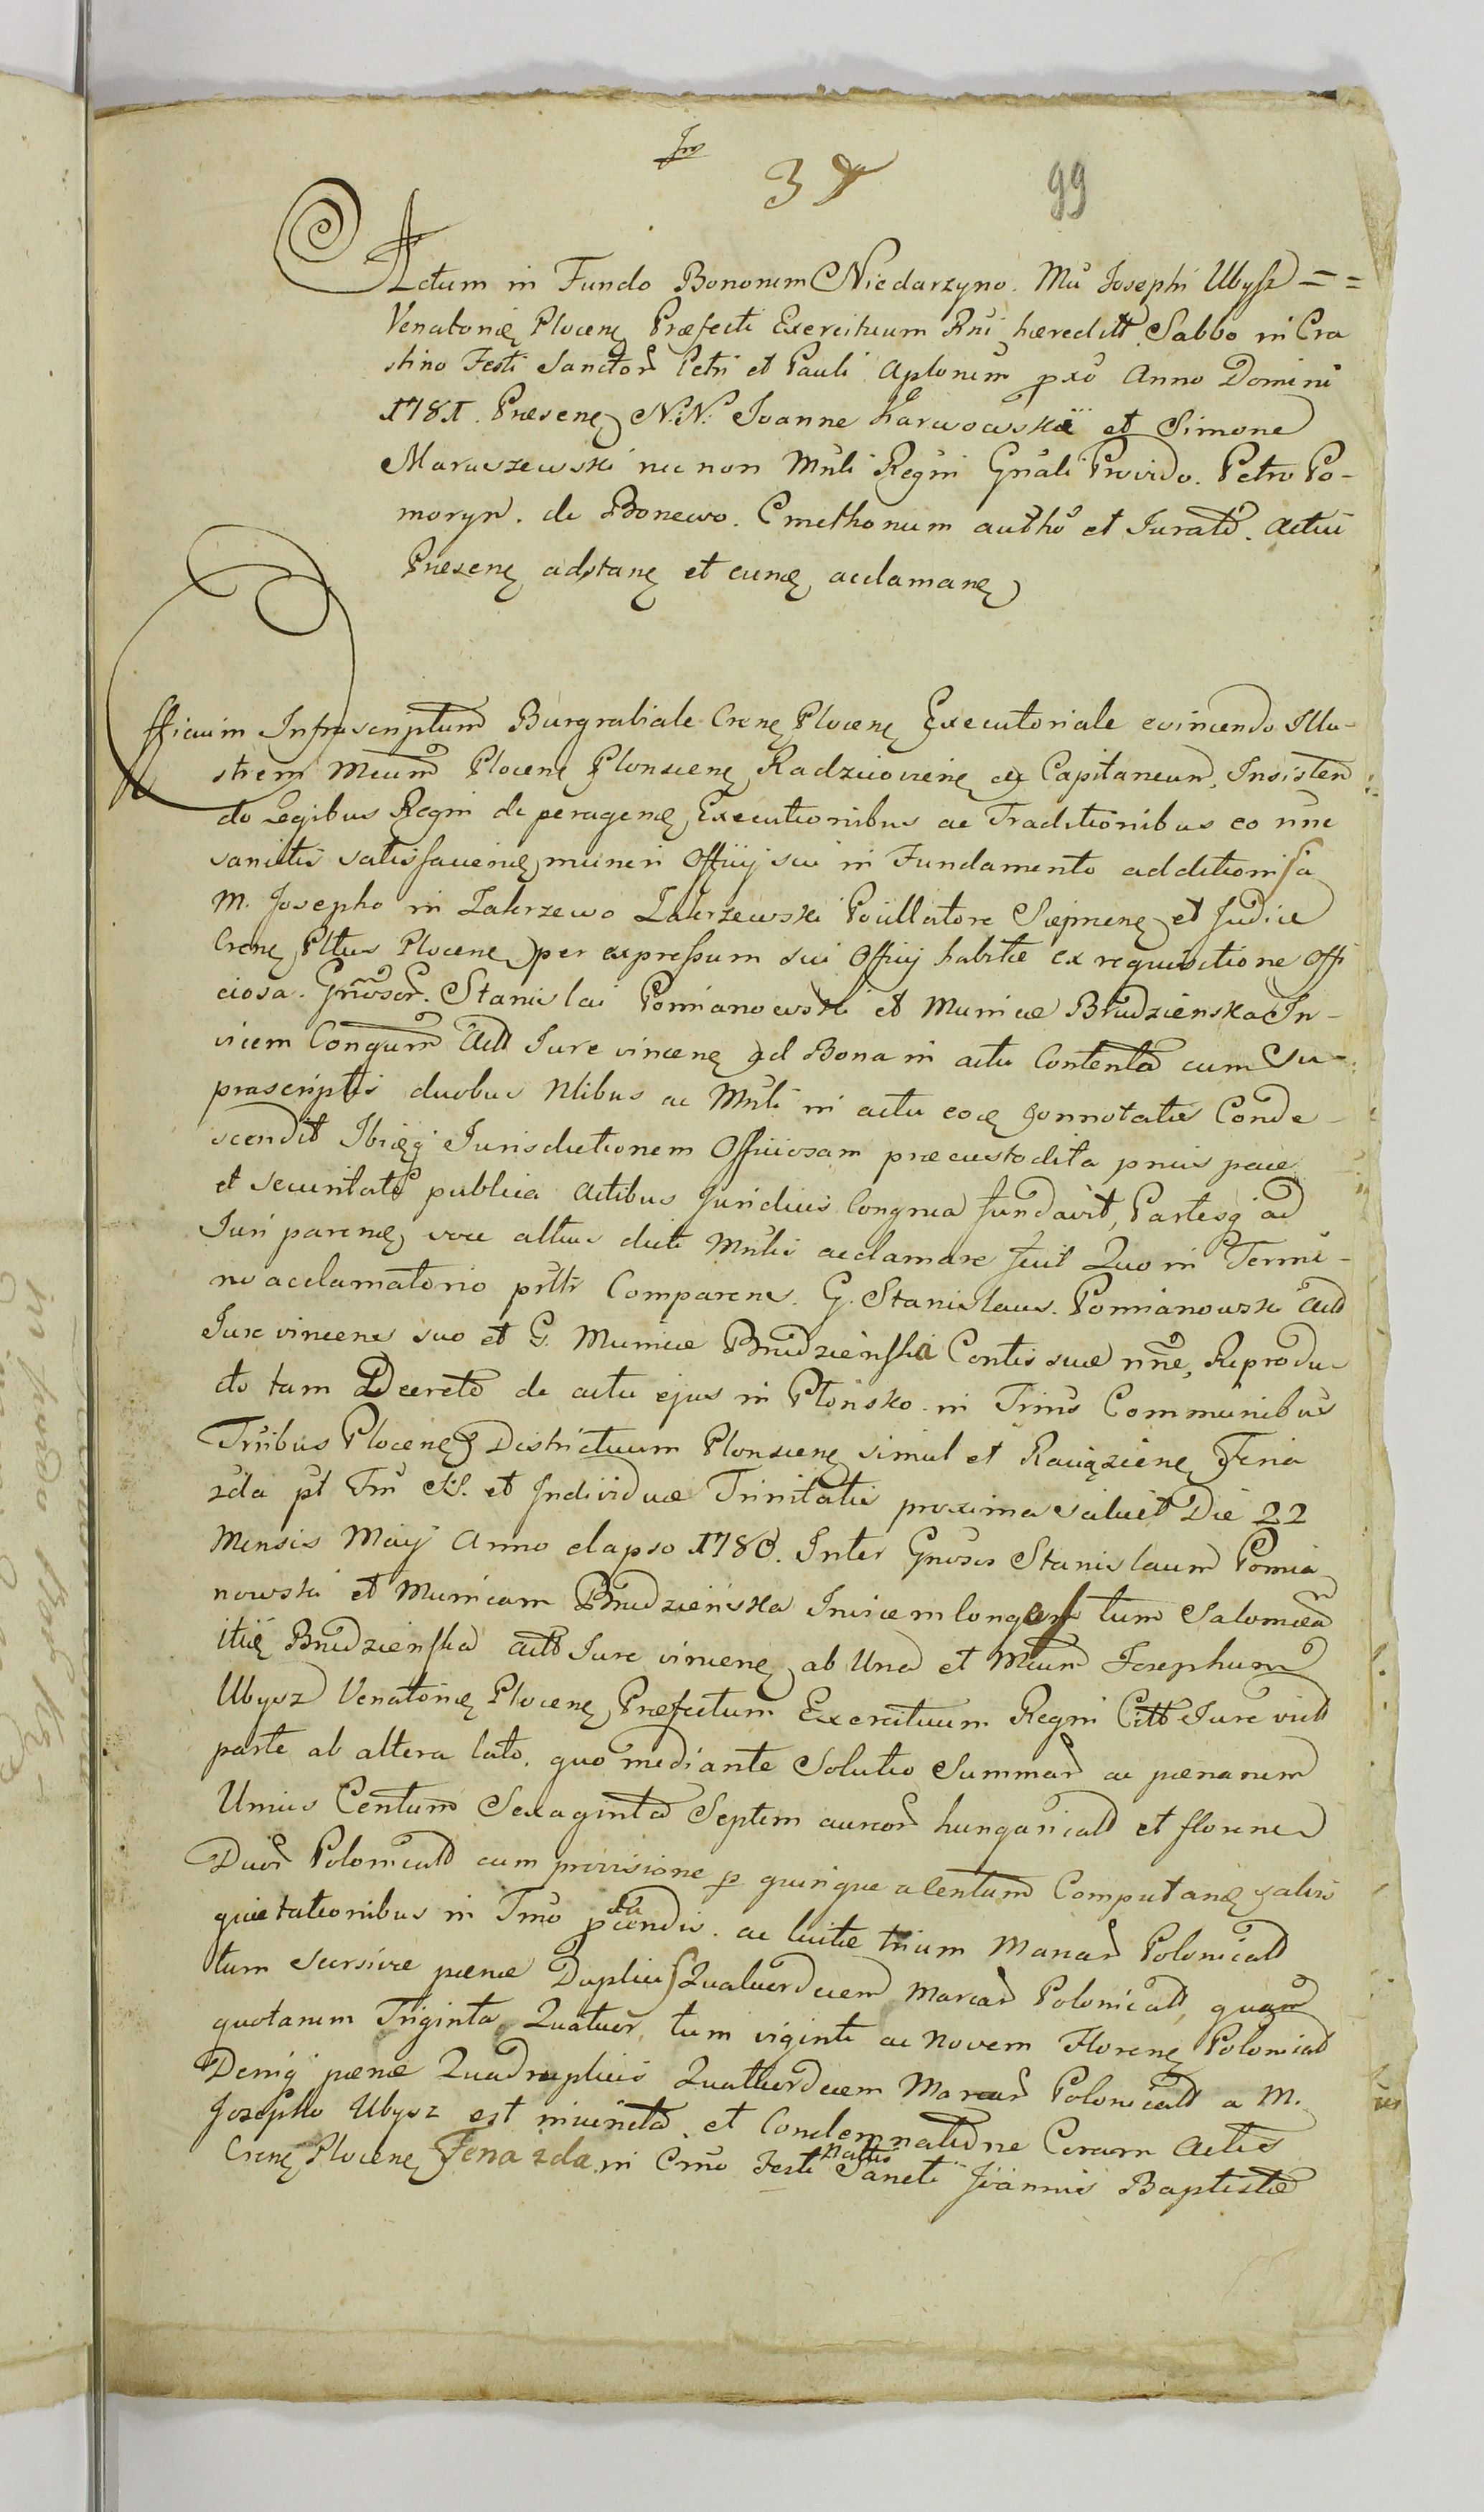 Im
3
99
Actum in Fundo Bonorum Niedarzyno. Mci Josephi Ubysz = =
Venatoris Plocens Præfecti Exercituum Rni hæreditt Sabbo in Cra
stino Festi Sanctor Petri et Pauli Aplorum pxo Anno Domini
1781. Præsens N.N. Joanne Karwowski et Simone
Maruszewski nec non Mnli Regni Gnali Provido. Petro Po-
moryn. de Bonewo. Cmethonum autho et Jurato. Actui
Præsens adstans et cunc acclamans
Officium Infrascriptum Burgrabiale Crens Plocens Executoriale evincendo Illu-
strem Mcum Plocens Plonscens Radziiovicens etc Capitaneum, Insisten
do Legibus Regni de peragens Executionibus ac Traditionibus eo nne
sancitis satisfaciens muneri Officij sui in Fundamento additionis a
M. Josepho in Zakrzewo Zakrzewski Pocillatore Sierpcens et Judice
Crens Pltus Plocens per expressum sui Officij habitæ ex requisitione Offi
ciosa. Gnosor. Stanislai Pomianowski et Municæ Brudzienska In-
vicem Congum Actt Jure vincens ad Bona in actu Contenta cum Su-
prascriptis duobus Nlibus ac Mnli in actu eoq connotatis Conde-
scendit Ibiq Jurisdictionem Officiosam præcustodita pnis pace
et securitate publica Actibus Juridicis Congrua fundavit, Partesq ad
Juri parens voce altius dicti Mnlis acclamare fecit Quo in Termi-
no acclamatorio psltr Comparens. G. Stanislaus. Pomianowski Actt
Jure vincens suo et G. Municæ Brudzienska Contis suæ nne, Reprodu-
cto tam Decreto de actu ejus in Płońsko in Trnis Communibus
Trribus Plocens Districtuum Plonscens simul et Raciązcens Feria
2da pt Fm SS. et Individuæ Trinitatis proxima Scilicet Die 22
Mensis Maij Anno elapso 1780. Inter Gnosos Stanislaum Pomia
nowski et Municam Brudzieńska Invicem Conges tum Salomeam
itiq Brudzienska actt Jure vincens ab Una et Mcum Josephum
Ubysz Venatoris Plocens Præfectum Exercituum Regni Citt Jure vict
parte ab altera lato. quo mediante Solutio Summar ac pænarum
Unius Centum Sexaginta Septem aureor hungaricall et florens
Duor Polonicall cum provisione p quinque a Centum Computans salvis
quietationibus in Tmo pciendis. ac luitæ trium Marcar Polonicall
tum Scrsivæ pænæ Duplicis Quatuordecem Marcar Polonicall, quam
quotarum Triginta Quatuor, tum viginti ac Novem Florens Polonicall
Deniq pænæ Quadruplicis Quatuordecem Marcar Polonicall a M.
Josepho Ubysz est injuncta. et Condemnatione Coram Actis
Crens Plocens Feria 2da in Cmo Festi Nattis Sancti Joannis Baptistæ